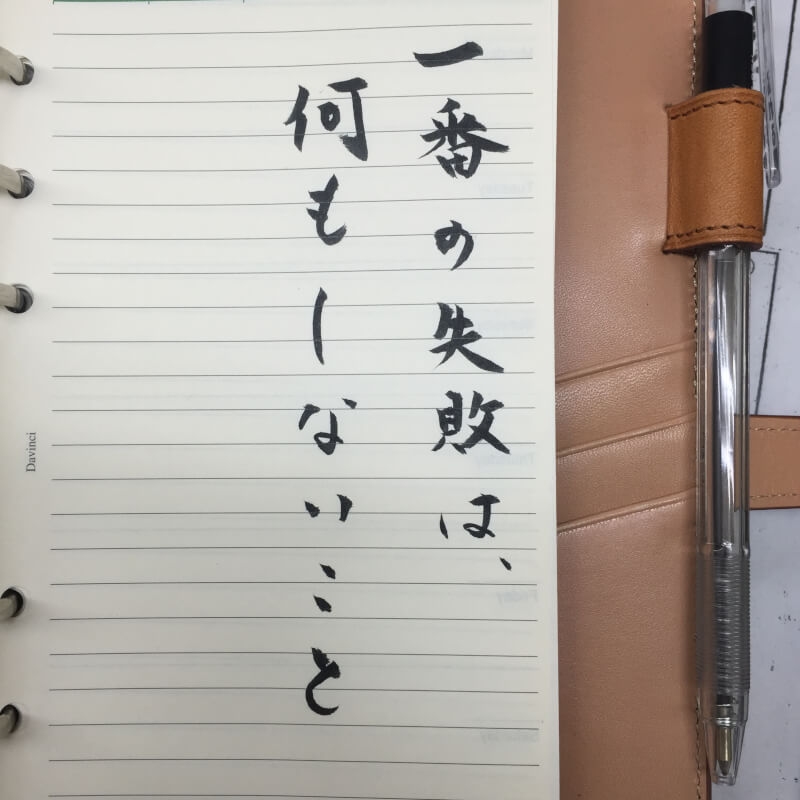 一番の失敗は、
何もしないこと
Davinci